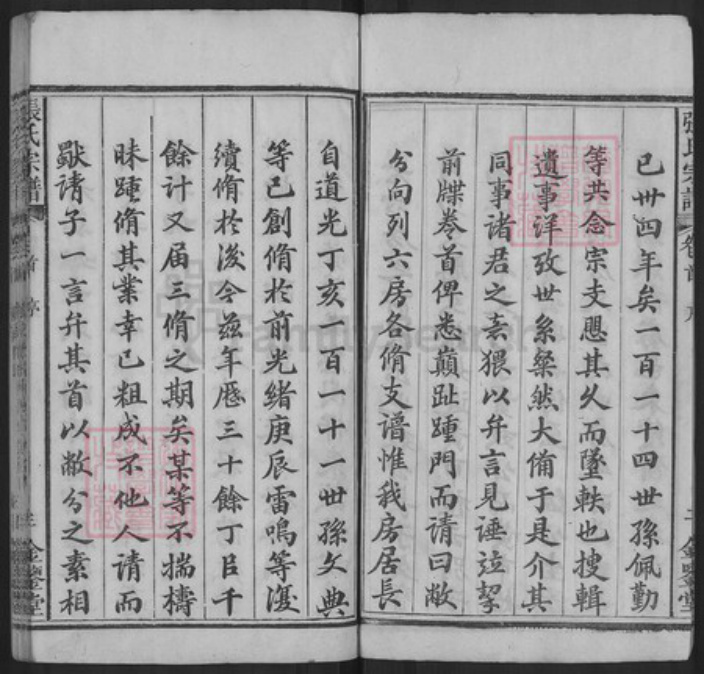 張氏宗譜 卷首 序 二 金鑒堂
已卅四年矣一百一十四世孫佩勤
等共念宗支恐其久而墜軼也搜輯
遺事洋攷世系粲然大備于是介其
同事諸君之嘉猥以弁言見諈竝挐
前牒卷首俾悉巔趾踵門而請曰敝
分向列六房各脩支谱惟我房居長
自道光丁亥一百一十一世孫文典
等已創脩於前光緒庚辰雷鳴等復
續脩於後今茲年歷三十餘丁口千
餘計又屆三脩之期矣某等不揣檮
昧踵脩其業幸已粗成不他人請而
歐请子一言弁其首以敝分之素相
張氏宗譜 卷首 序 三 金鑒堂
FamilySearch